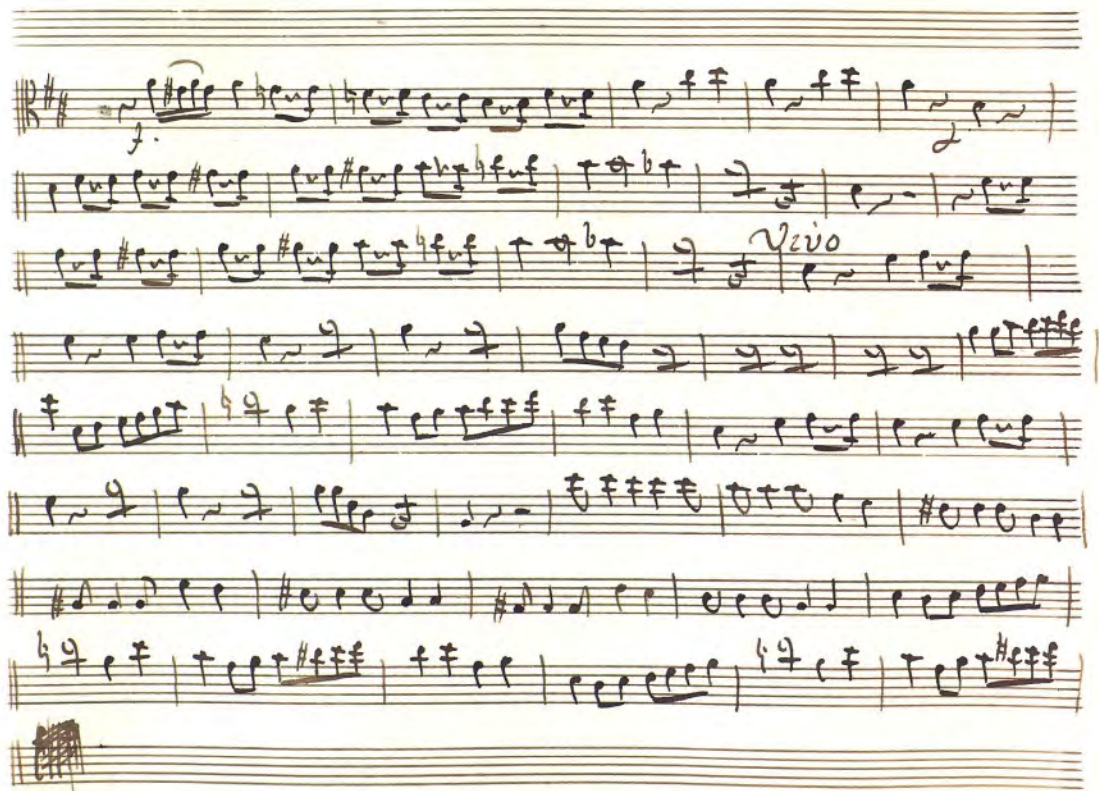 f.
Vivo